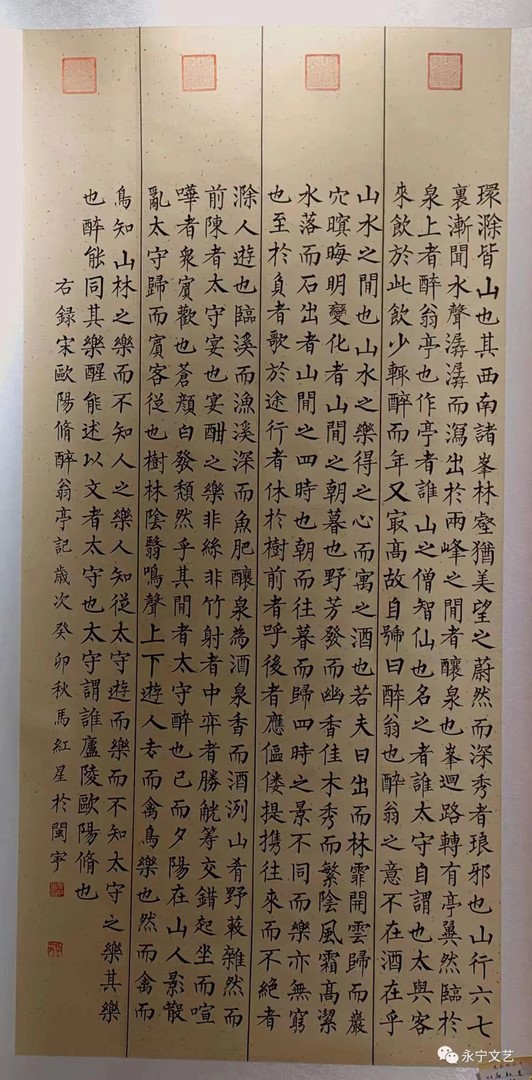 環滁皆山也其西南諸峯林壑猶美望之蔚然而深秀者琅邪也山行六七
裏漸聞水聲潺潺而瀉出於兩峰之閒者釀泉也峯迴路轉有亭翼然臨於
泉上者醉翁亭也作亭者誰山之僧智仙也名之者誰太守自謂也太與客
來飲於此飲少輒醉而年又冣高故自號曰醉翁也醉翁之意不在酒在乎
山水之閒也山水之樂得之心而寓之酒也若夫日出而林霏開雲歸而巖
穴暝晦明變化者山閒之朝暮也野芳發而幽香佳木秀而繁陰風霜高潔
水落而石出者山閒之四時也朝而往暮而歸四時之景不同而樂亦無窮
也至於負者歌於途行者休於樹前者呼後者應傴僂提攜往來而不絕者
滁人遊也臨溪而漁溪深而魚肥釀泉為酒泉香而酒洌山肴野蔌雜然而
前陳者太守宴也宴酣之樂非絲非竹射者中弈者勝觥籌交錯起坐而喧
嘩者衆賓歡也蒼顏白發頹然乎其閒者太守醉也已而夕陽在山人影散
亂太守歸而賓客從也樹林陰翳鳴聲上下遊人去而禽鳥樂也然而禽而
鳥知山林之樂而不知人之樂人知從太守遊而樂而不知太守之樂其樂
也醉能同其樂醒能述以文者太守也太守謂誰廬陵歐陽脩也
右録宋歐陽脩醉翁亭記歲次癸卯秋馬紅星於閩宇
永宁文艺